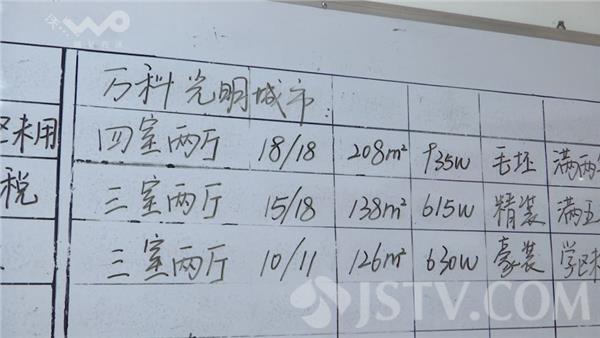 万科光明城市
未用
四室两厅 18/18 208m² 935W 毛坯 满两
税
三室两厅 15/18 138m² 615W 精装 满五
三室两厅 10/11 126m² 630W 豪装 学区未
JSTV.COM